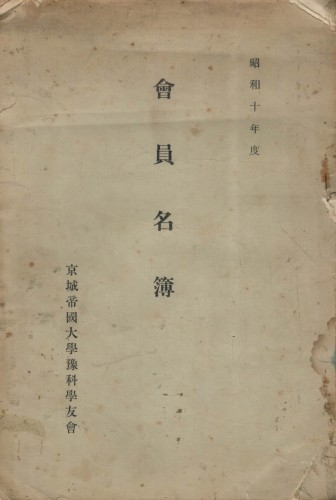 昭和十年度
會員名簿
京城帝國大學豫科學友會